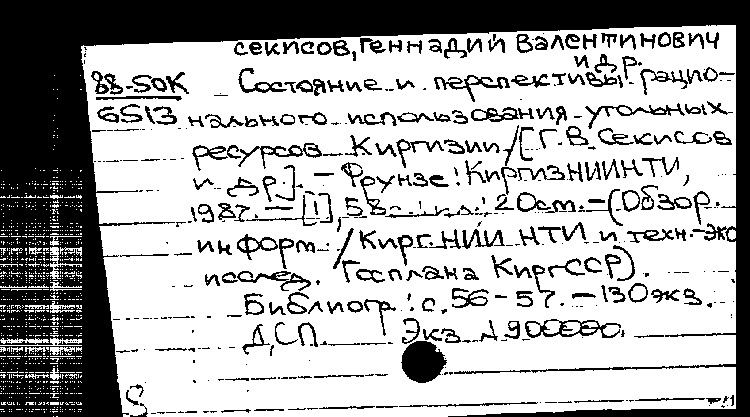 Секисов, Геннадий Валентинович
и др.
88-SOK Состояние и перспективы рацио-
6513 нального использования угольных
ресурсов Киргизии / [Г.В. Секисов
и др]. - Фрунзе: КиргизНИИНТИ,
1987. - [1], 58с.: ил.; 20 см. - (Обзор.
информ. / Кирг.НИИ НТИ и техн.-эко
послед. Госплана КиргССР).
Библиогр: с. 56-57. - 130 экз.
ДСП. Экз. №00000.
S